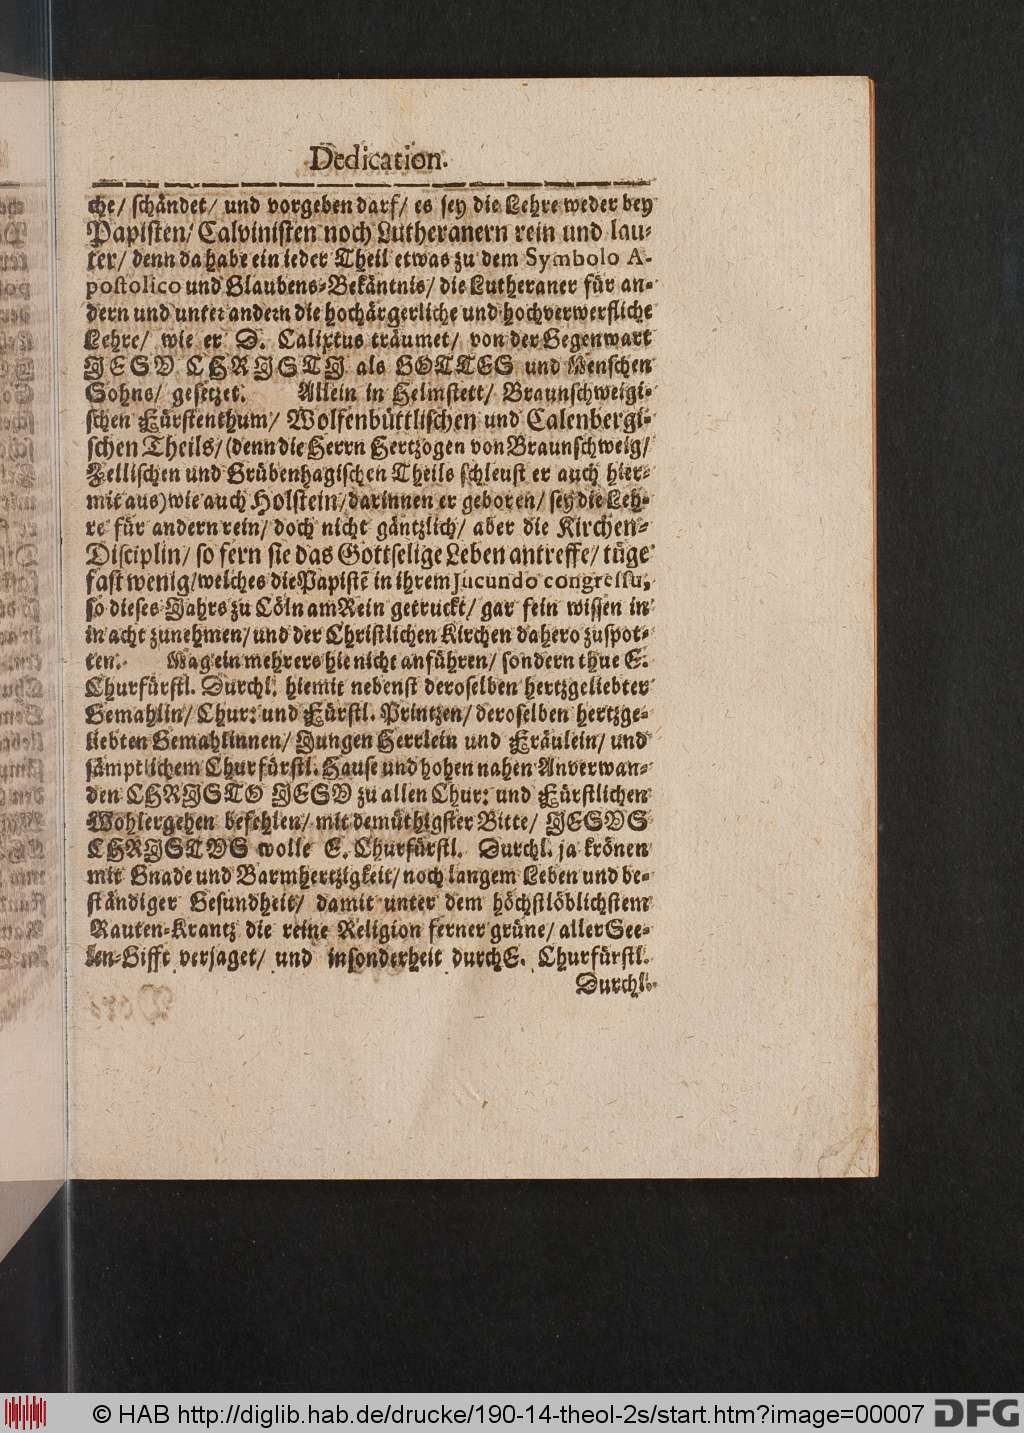 Dedication.
che/ schändet/ und vorgeben darf/ es sey die Lehre weder bey
Papisten/ Calvinisten noch Lutheranern rein und lau-
ter/ denn da habe ein ieder Theil etwas zu dem Symbolo A-
postolico und Glaubens-Bekäntnis/ die Lutheraner für an-
dern und unter andern die hochärgerliche und hochverwerfliche
Lehre/ wie er D. Calixtus träumet/ von der Gegenwart
JESV CHRISTI als GOTTES und Menschen
Sohns/ gesetzet. Allein in Helmstett/ Braunschweigi-
schen Fürstenthum/ Wolfenbüttlischen und Calenbergi-
schen Theils/ (denn die Herrn Hertzogen von Braunschweig/
Zellischen und Grübenhagischen Theils schleust er auch hier-
mit aus) wie auch Holstein/ darinnen er geboren/ sey die Leh-
re für andern rein/ doch nicht gäntzlich/ aber die Kirchen-
Disciplin/ so fern sie das Gottselige Leben antreffe/ tüge
fast wenig/ welches die Papistẽ in ihrem Jucundo congressu,
so dieses Jahrs zu Cöln am Rein getruckt/ gar fein wissen in
in acht zunehmen/ und der Christlichen Kirchen dahero zuspot-
ten. Mag ein mehrers hie nicht anführen/ sondern thue E.
Churfürstl. Durchl. hiemit nebenst deroselben hertzgeliebter
Gemahlin/ Chur: und Fürstl. Printzen/ deroselben hertzge-
liebten Gemahlinnen/ Jungen Herrlein und Fräulein/ und
sämptlichem Churfürstl. Hause und hohen nahen Anverwan-
den CHRISTO JESV zu allen Chur: und Fürstlichen
Wohlergehen befehlen/ mit demüthigster Bitte/ JESVS
CHRISTVS wolle E. Churfürstl. Durchl. ja krönen
mit Gnade und Barmhertzigkeit/ noch langem Leben und be-
ständiger Gesundheit/ damit unter dem höchstlöblichstem
Rauten-Krantz die reine Religion ferner grüne/ aller See-
len-Gifft verjaget/ und insonderheit durch E. Churfürstl.
Durchl.
© HAB http://diglib.hab.de/drucke/190-14-theol-2s/start.htm?image=00007
DFG